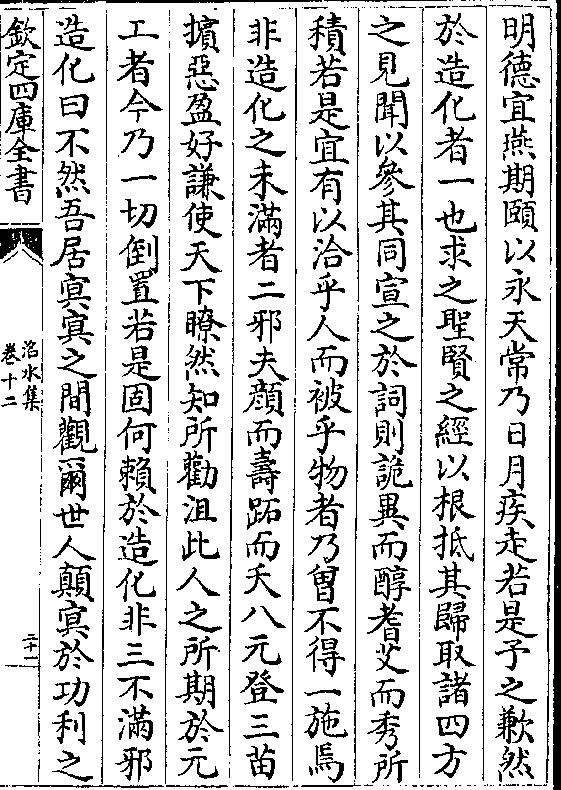 明德宜燕期頤以永天常乃日月疾走若是予之歉然
於造化者一也求之聖賢之經以根抵其歸取諸四方
之見聞以參其同宣之於詞則詭異而醇耆艾而秀所
積若是宜有以洽乎人而被乎物者乃曾不得一施焉
非造化之未滿者二邪夫顔而壽跖而夭八元登三苗
擯惡盈好謙使天下瞭然知所勸沮此人之所期於元
工者今乃一切倒置若是固何賴於造化非三不滿邪
造化曰不然吾居㝠㝠之間觀爾世人顛㝠於功利之
欽定四庫全書
洺水集
卷十二
三十一